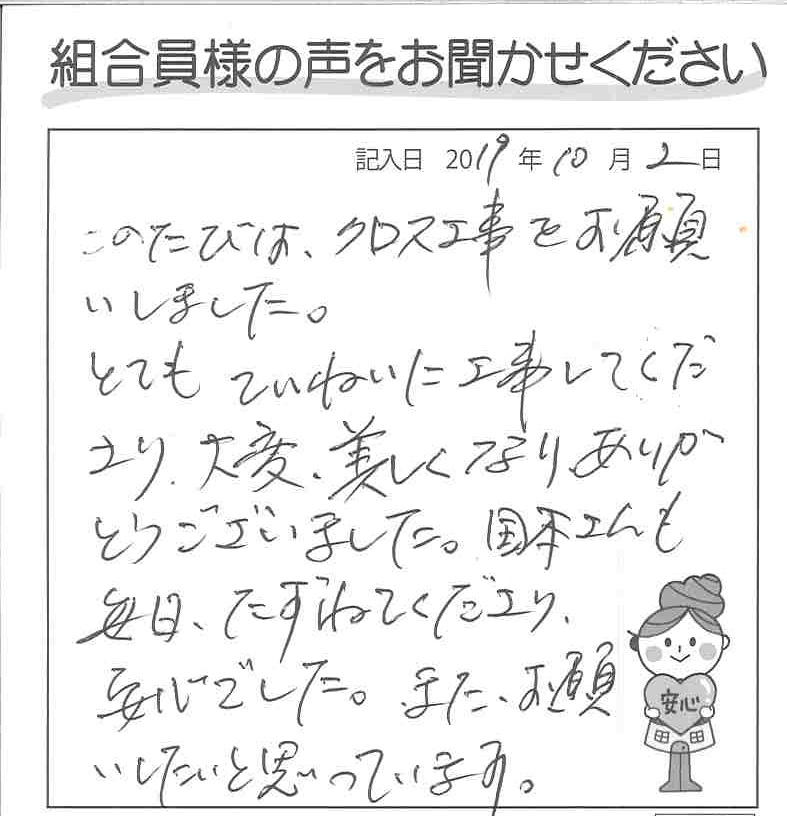 組合員様の声をお聞かせください
記入日 2019年10月2日
このたびは、クロス工事をお願
いしました。
とても ていねいに工事してくだ
さり、大変、美しくなり、ありが
とうございました。国本さんも
毎日、たずねてくださり、
安心でした。また、お願
いしたいと思っています。
安心